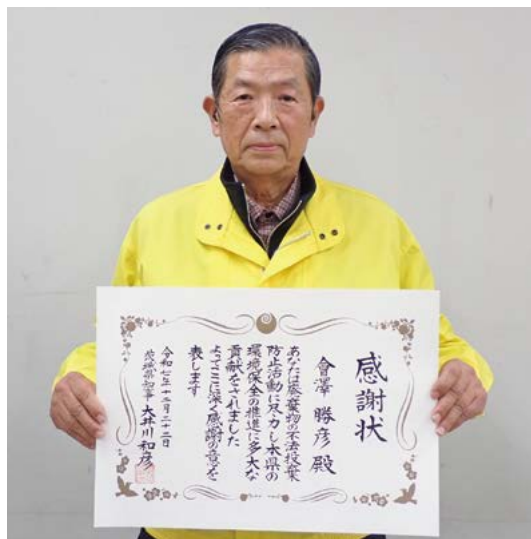 感謝状
會澤勝彦殿
あなたは廃棄物の不法投棄
防止活動に尽力し本県の
環境保全の推進に多大な
貢献をされました
よってここに深く感謝の意を
表します
令和七年十二月二十二日
茨城県知事 大井川和彦